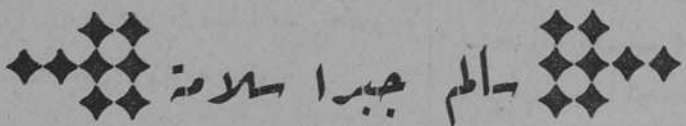 سالم جبرا سلامة